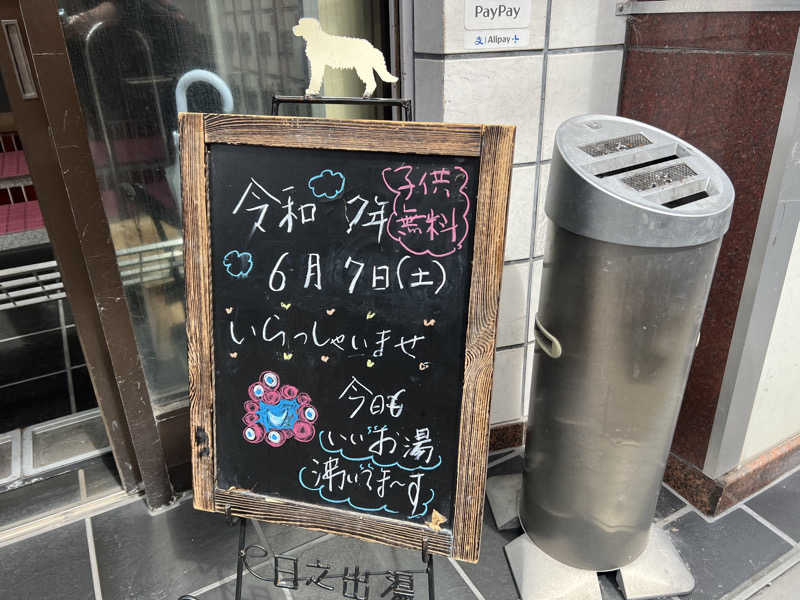 PayPay
Alipay
令和 7年
子供
無料
6月 7日(土)
いらっしゃいませ
今日も
いいお湯
沸いてま〜す
日之出湯